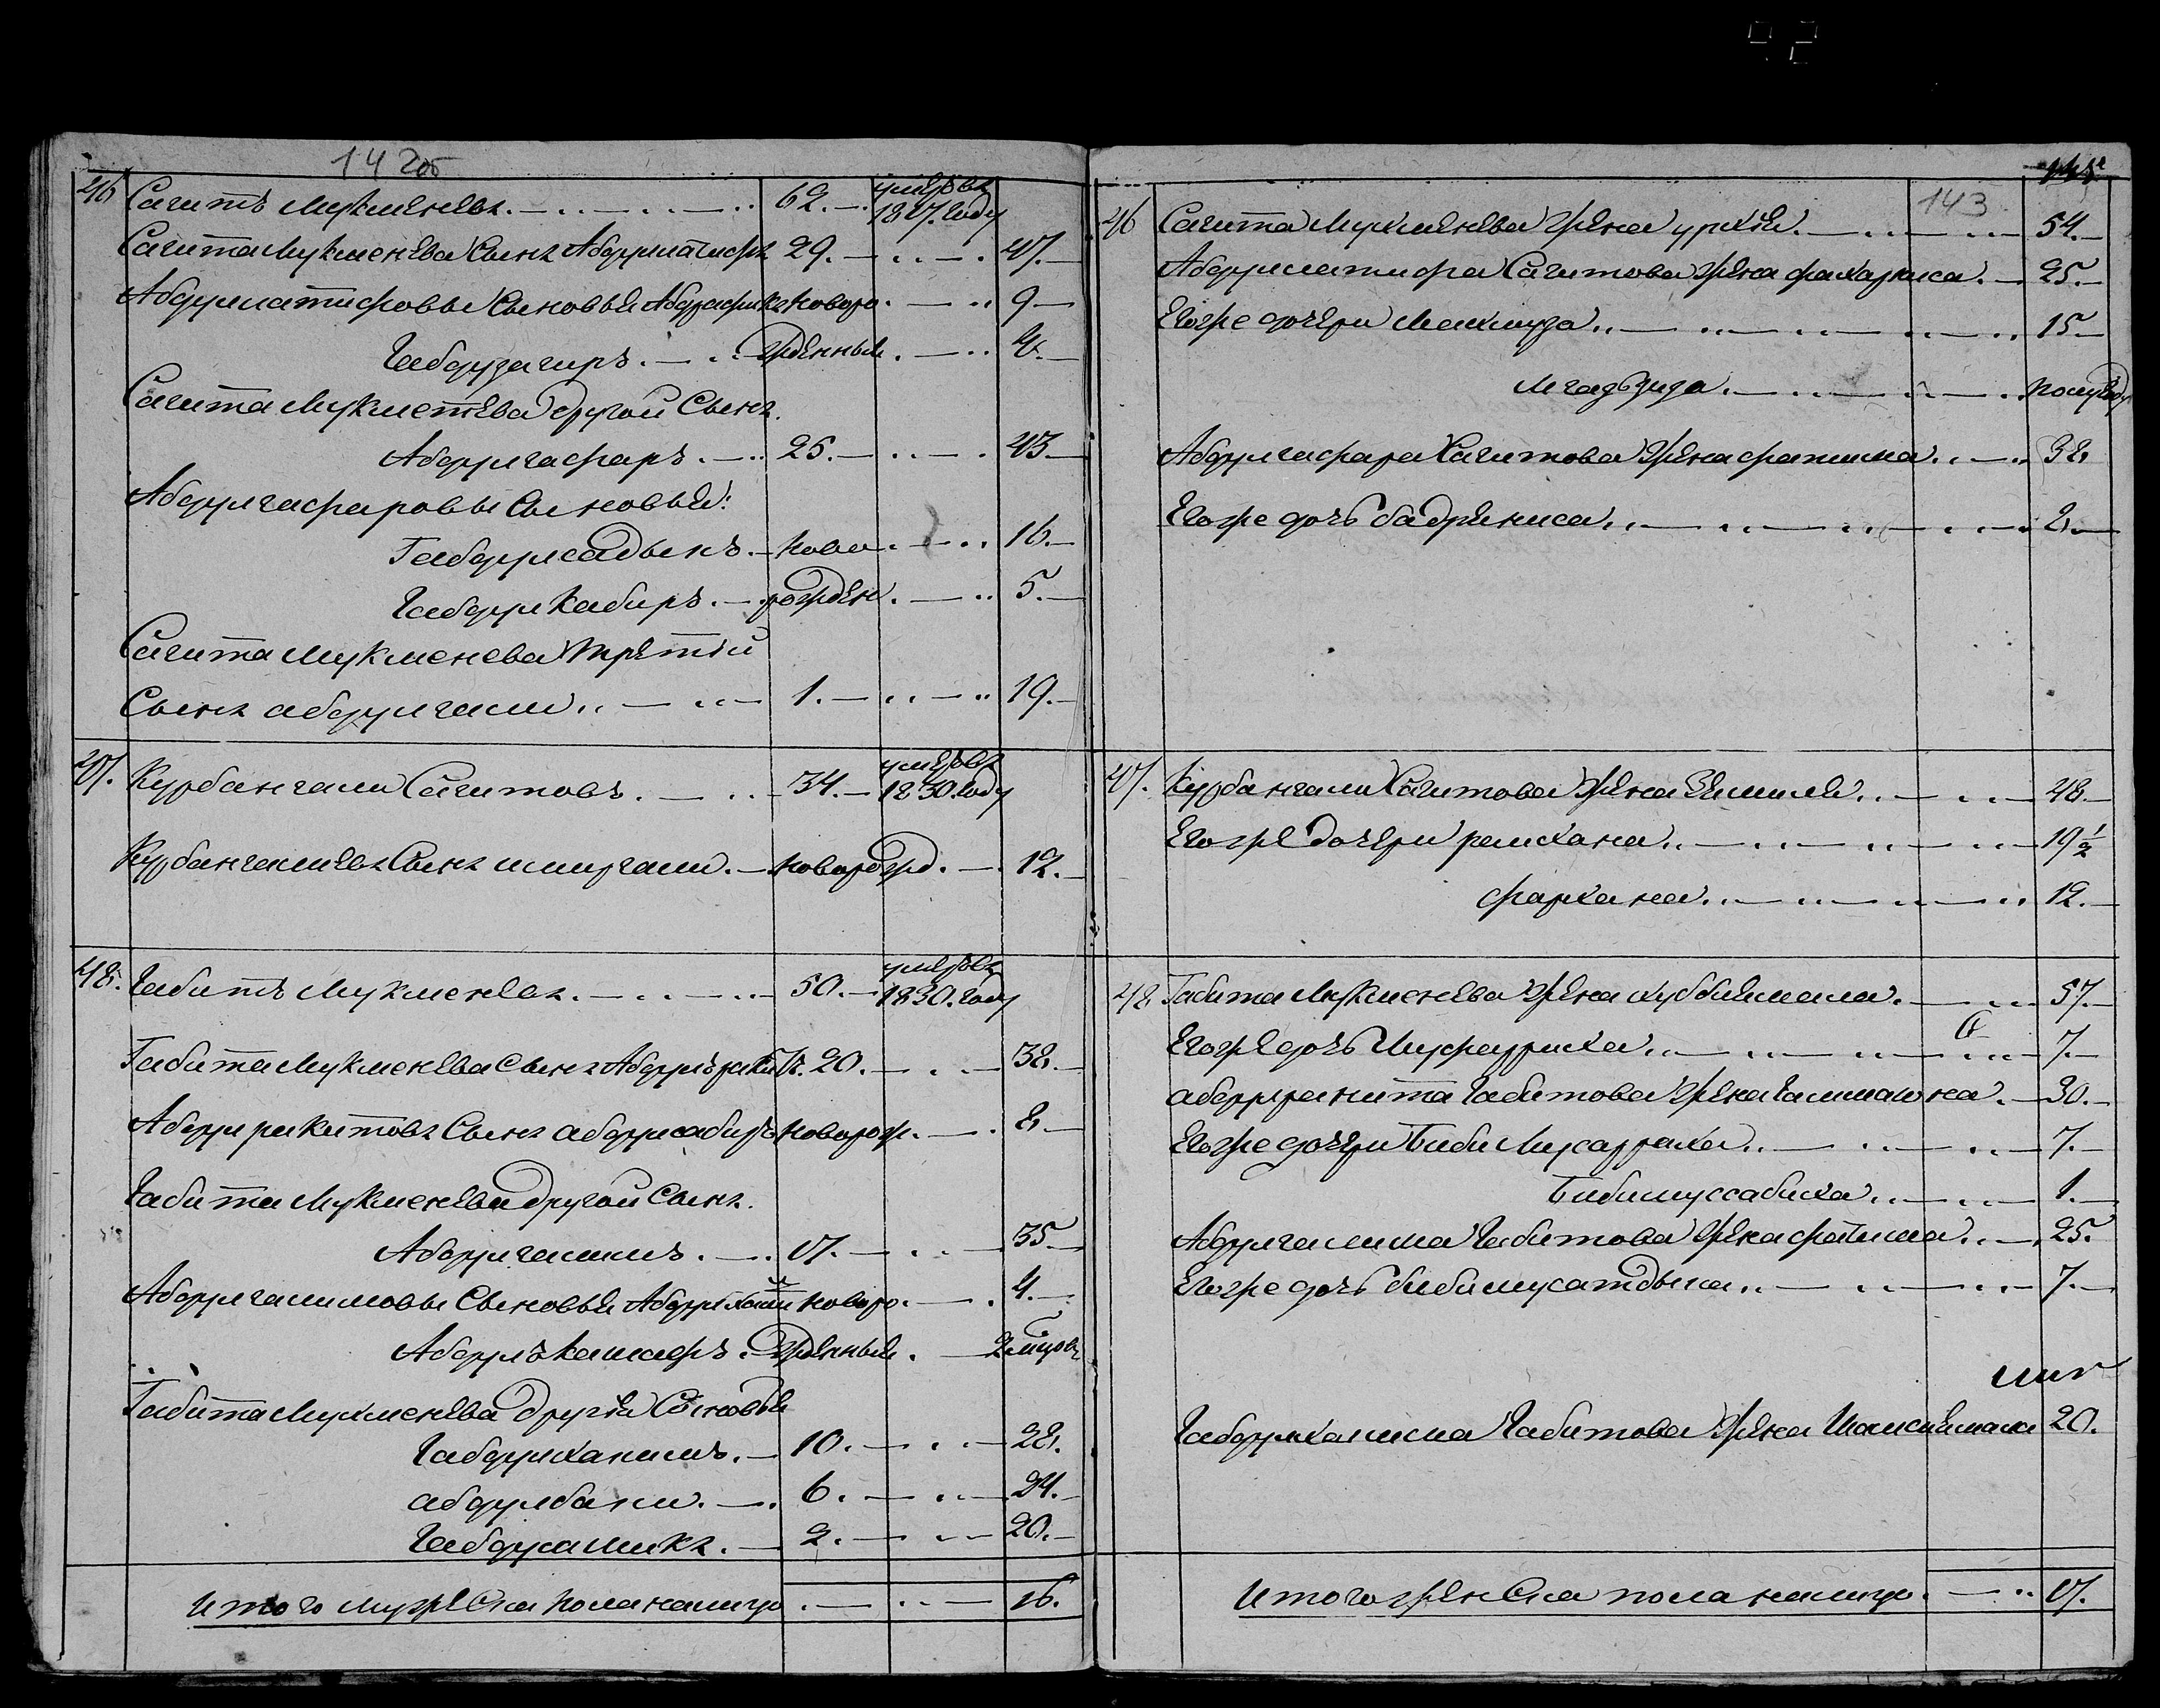 142об
46 Сагитъ Мукменевъ. 62. умеръ въ
1817. году
Сагита Мукменева Сынъ Абдуллатифъ 29. 47.
Абдуллатифовы Сыновья Абдрафикъ новоро 9
Габдузагиръ. жденныя. 4.
Сагита Мукметева другой Сынъ
Абдулгафаръ. 25. 43
Абдулгафаровы Сыновья:
Габдулсадыкъ. ново 16.
Габдулкабиръ. рожден. 5.
Сагита Мукменева третий
Сынъ абдулгали 1. 19.
47. Курбангали Сагитовъ. 34. умеръ въ
1830. году
Курбангалиевъ Сынъ ишмугали. новорожд. 12.
48. Габитъ Мукменевъ. 50. умеръ въ
1830. году
Габита Мукменева Сынъ Абдулъракитъ. 20. 38.
Абдулракитовъ Сынъ абдулсабиръ новорож. 8.
Габита Мукменева другой Сынъ.
Абдулгалимъ. 17. 35
Абдулгалимовы Сыновья новоро. 4.
жденныя.
Габита Мукменева другія Сыновья
Габдулхакимъ. 10. 28.
абдулбаки. 6. 24.
Габдулмаликъ. 2. 20.
Итого мужеска пола налицо 16.
143
46 Сагита Мукменева жена 54.
Абдуллатифа Сагитова жена фахарниса. 25.
Егоже дочери Махмуза 15
Магдзида. полугоду
Абдулгафара Сагитова жена фатима 32
Егоже дочь бадрениса 2.
47. Курбангали Сагитова жена 48.
Егоже дочери рамхана 19 1/2
фархана 12.
48 Габита Мукменева жена хуббиямала. 57.
Егоже дочь 7.
Габитова жена 30.
Егоже дочери Биби 7.
1.
Абдулгалима Габитова жена фатима 25.
Егоже дочь 7.
Габдулхакима Габитова жена Шамсиямала 20.
Итого женска пола налицо. 17.